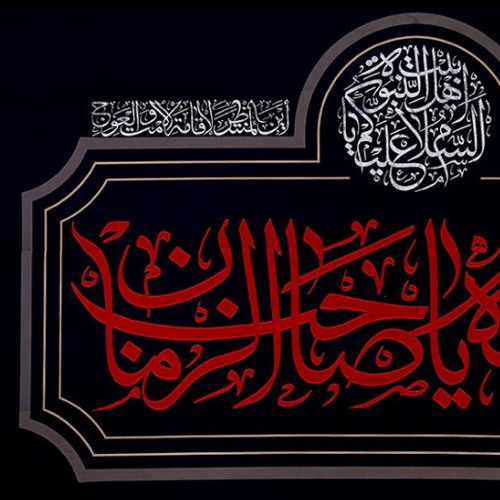 السلام علیکم یا اهل بیت النبوة
أین المنتظر لإقامة الأمت و العوج
یا صاحب الزمان